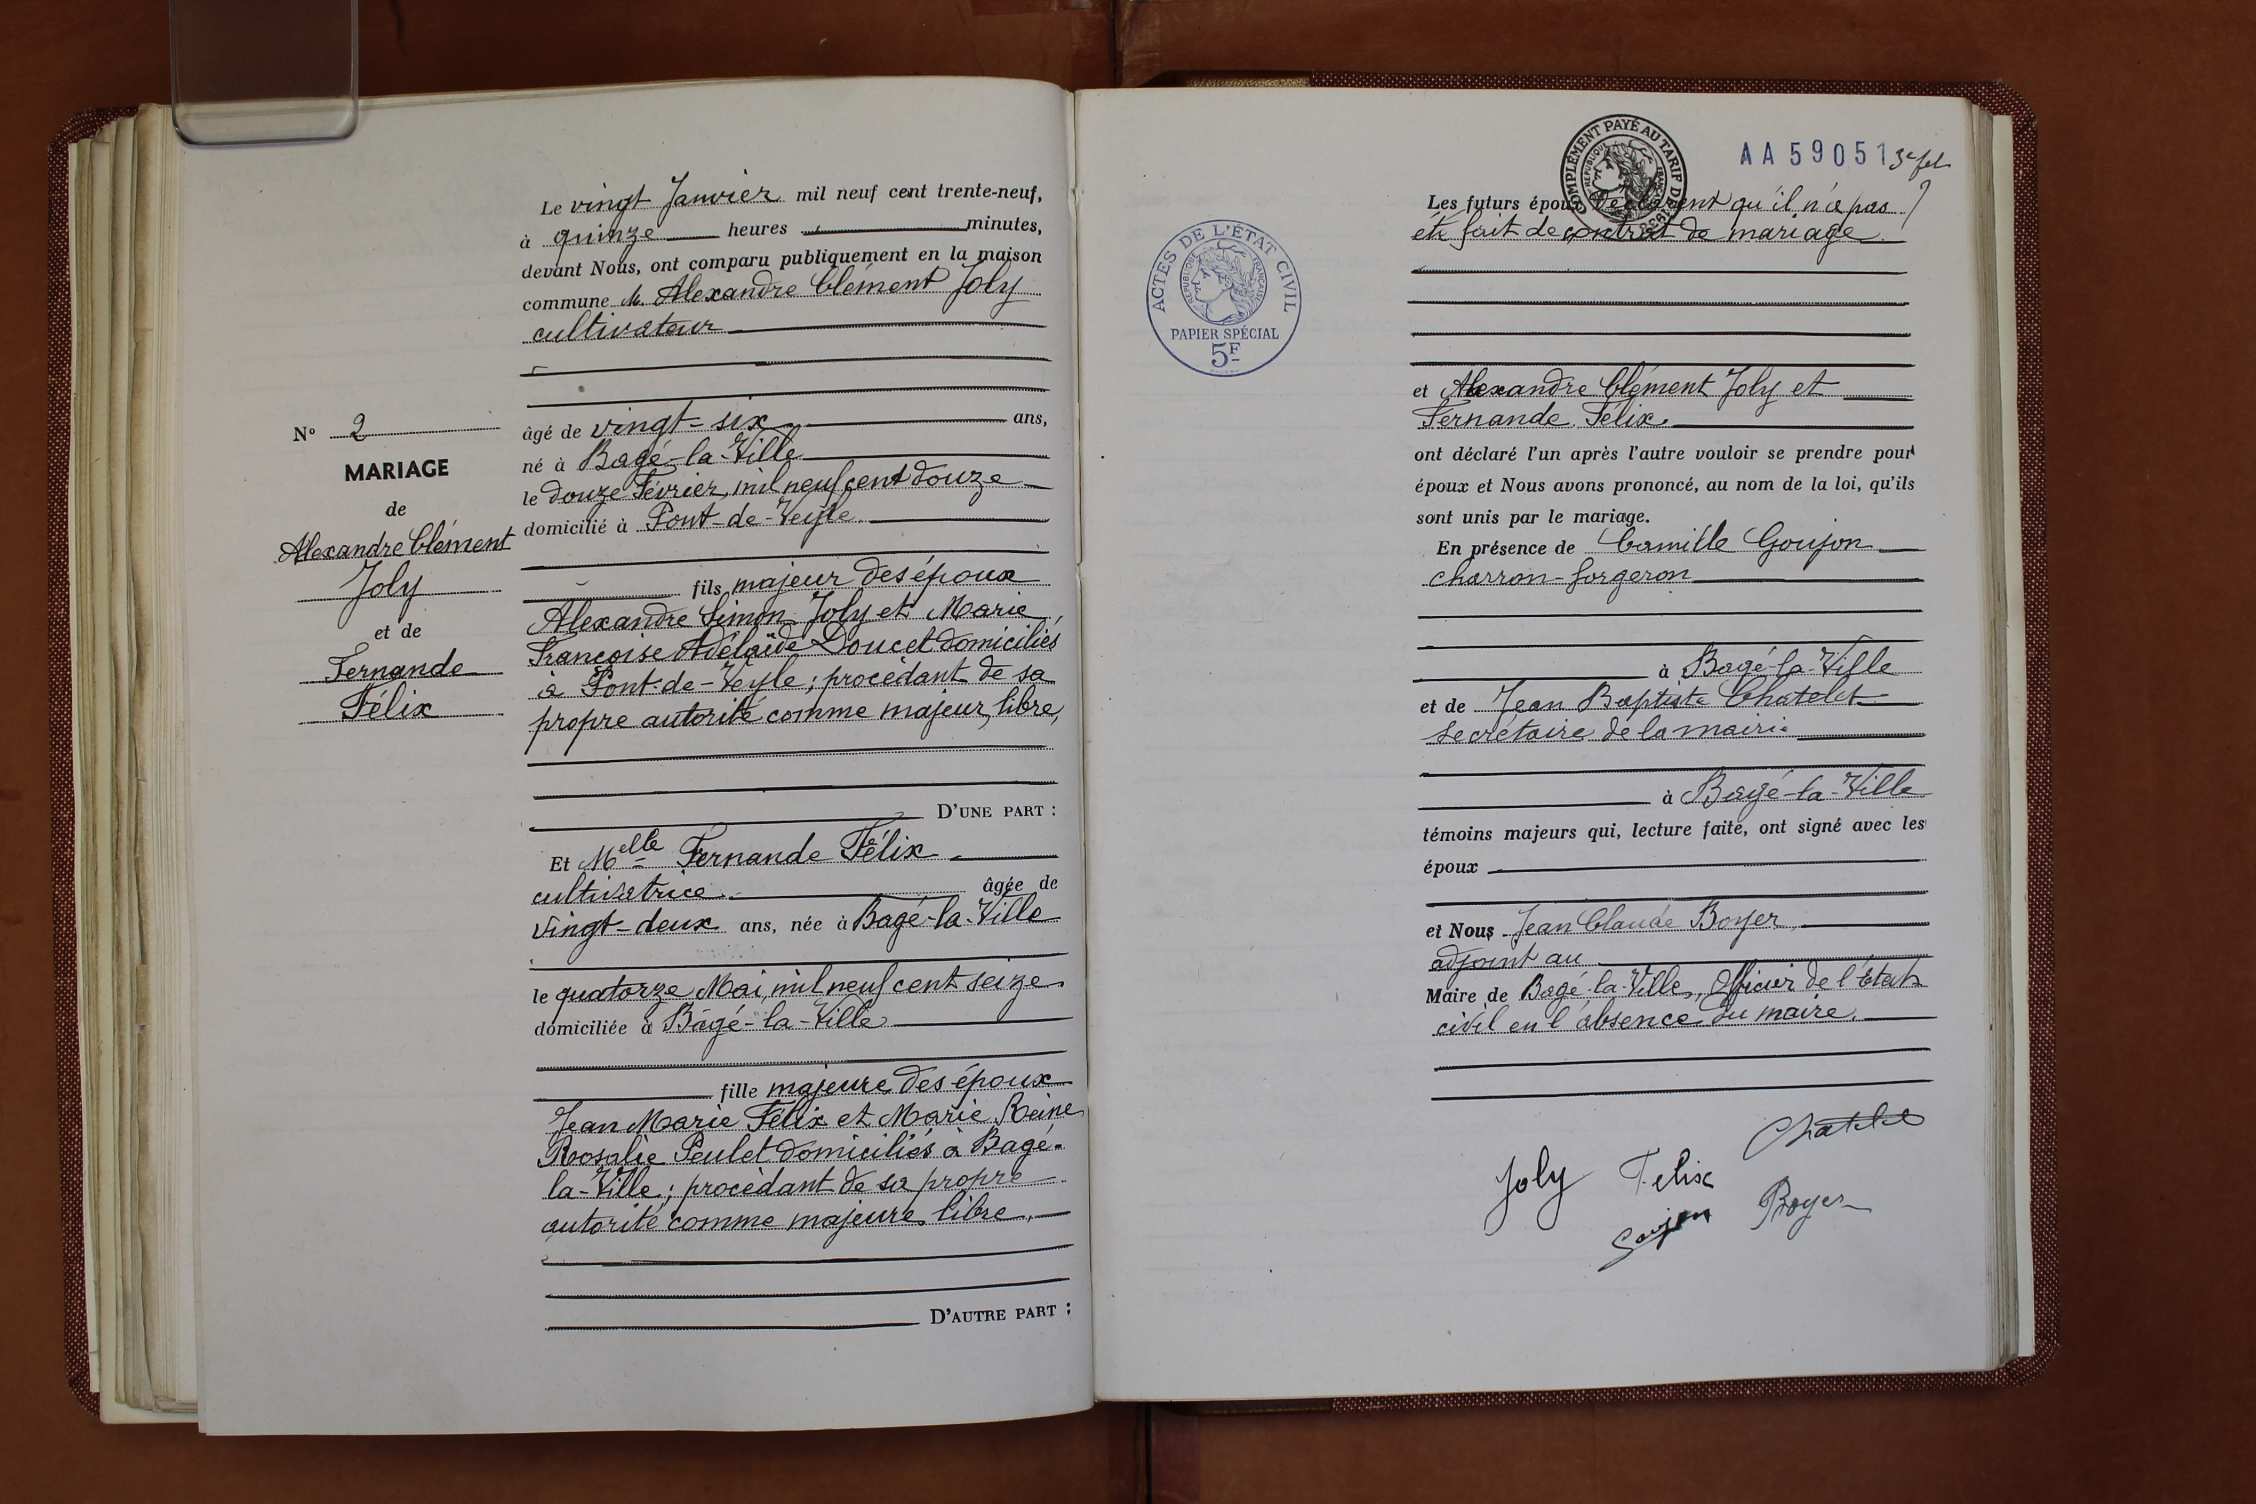 Le vingt Janvier mil neuf cent trente-neuf,
à quinze heures minutes,
devant Nous, ont comparu publiquement en la maison
commune M. Alexandre Clément Joly
cultivateur
âgé de vingt-six ans,
né à Bagé-la-Ville
le douze Février mil neuf cent douze
domicilié à Pont-de-Veyle
fils majeur des époux
Alexandre Simon Joly et Marie
Françoise Adélaïde Doucet domiciliés
à Pont-de-Veyle; procédant de sa
propre autorité comme majeur libre,
D'UNE PART :
Nº 2
MARIAGE
de
Alexandre Clément
Joly
et de
Fernande
Félix
Et Melle Fernande Félix
cultivatrice âgée de
vingt-deux ans, née à Bagé-la-Ville
le quatorze Mai, mil neuf cent seize
domiciliée à Bâgé-la-Ville
fille majeure des époux
Jean Marie Félix et Marie Reine
Rosalie Peulet domiciliés à Bagé-
la-Ville; procédant de sa propre
autorité comme majeure libre,
D'AUTRE PART :
COMPLÉMENT PAYÉ AU TARIF DE
RÉPUBLIQUE FRANÇAISE
AA 59051
ACTES DE L'ÉTAT CIVIL
RÉPUBLIQUE FRANÇAISE
PAPIER SPÉCIAL
5F
Les futurs époux déclarent qu'il n'a pas
été fait de contrat de mariage.
et Alexandre Clément Joly et
Fernande Félix
ont déclaré l'un après l'autre vouloir se prendre pour
époux et Nous avons prononcé, au nom de la loi, qu'ils
sont unis par le mariage.
En présence de Camille Goujon
charron-forgeron
à Bagé-la-Ville
et de Jean Baptiste Chatelet
secrétaire de la mairie
à Bagé-la-Ville
témoins majeurs qui, lecture faite, ont signé avec les
époux
et Nous Jean Claude Boyer,
adjoint au
Maire de Bagé-la-Ville, Officier de l'État
civil en l'absence du maire.
Chatelet
Joly Felix
Goujon Boyer